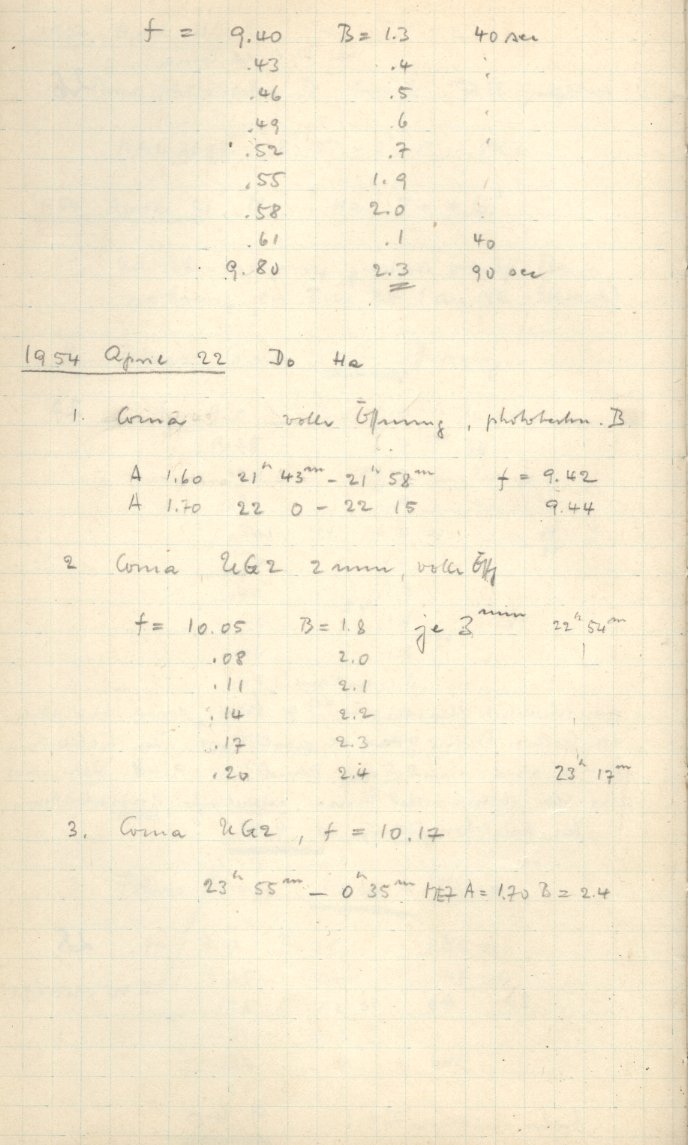 f = 9.40 B = 1.3 40 sec
.43 .4 "
.46 .5 "
.49 .6 "
.52 .7 "
.55 1.9 "
.58 2.0
.61 .1 40
9.80 2.3 90 sec
1954 April 22 Do Ha
1. Coma volle Öffnung, phototechn. B
A 1.60 21h 43m - 21h 58m f = 9.42
A 1.70 22 0 - 22 15 9.44
2 Coma UG2 2 mm, volle Öff
f = 10.05 B = 1.8 je 3 min 22h 54m
.08 2.0
.11 2.1
.14 2.2
.17 2.3
.20 2.4 23h 17m
3. Coma UG2, f = 10.17
23h 55m - 0h 35m MEZ A = 1.70 B = 2.4